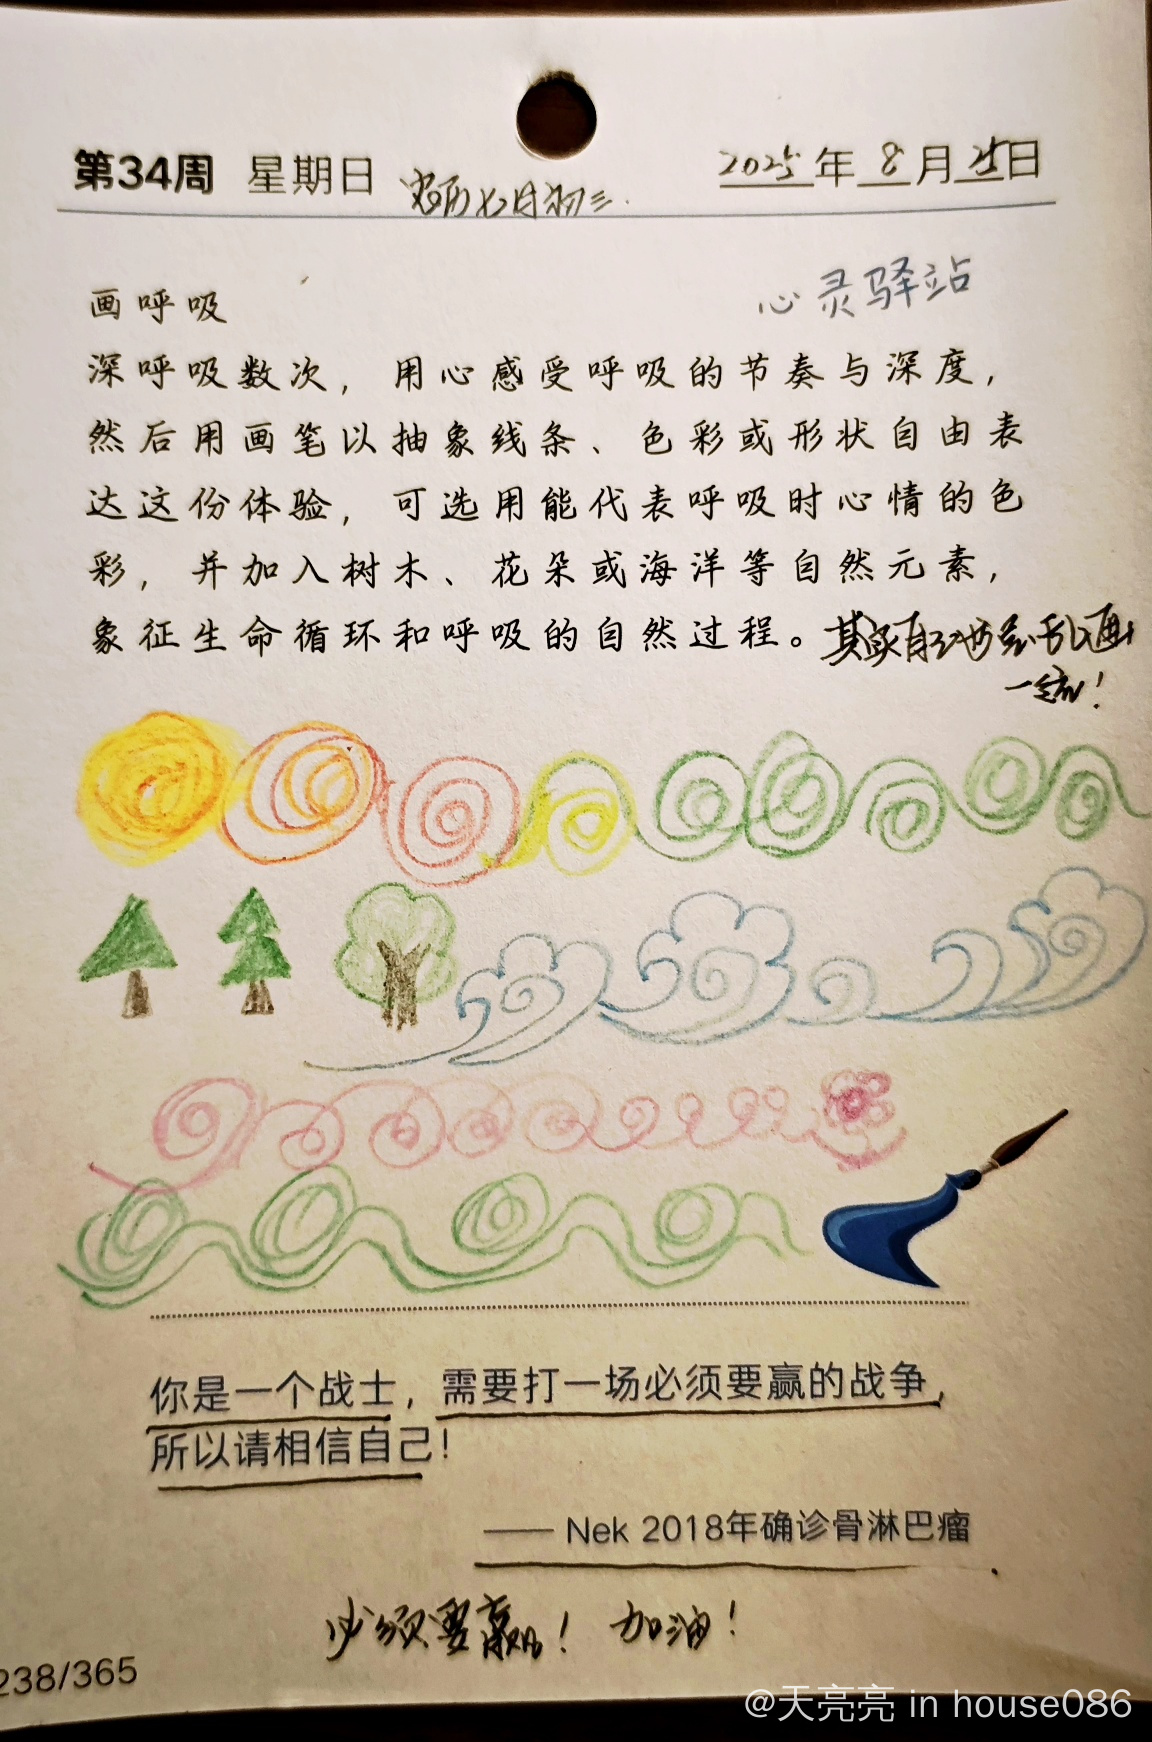 第34周 星期日 农历七月初三. 2025年8月25日
心灵驿站
画呼吸
深呼吸数次，用心感受呼吸的节奏与深度，
然后用画笔以抽象线条、色彩或形状自由表
达这份体验，可选用能代表呼吸时心情的色
彩，并加入树木、花朵或海洋等自然元素，
象征生命循环和呼吸的自然过程。其实
乱画
一
！
你是一个战士，需要打一场必须要赢的战争，
所以请相信自己！
—— Nek 2018年确诊骨淋巴瘤
必须要赢！ 加油！
238/365
@天亮亮 in house086